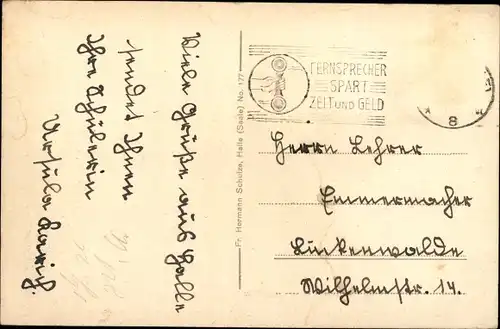 Viele Grüße aus Halle
sendet Ihnen
Ihre Schülerin
Ursula
Fr. Hermann Schulze, Halle (Saale) No. 177
FERNSPRECHER
SPART
ZEIT UND GELD
8
Herrn Lehrer
Emmermacher
Luckenwalde
Wilhelmstr. 14.